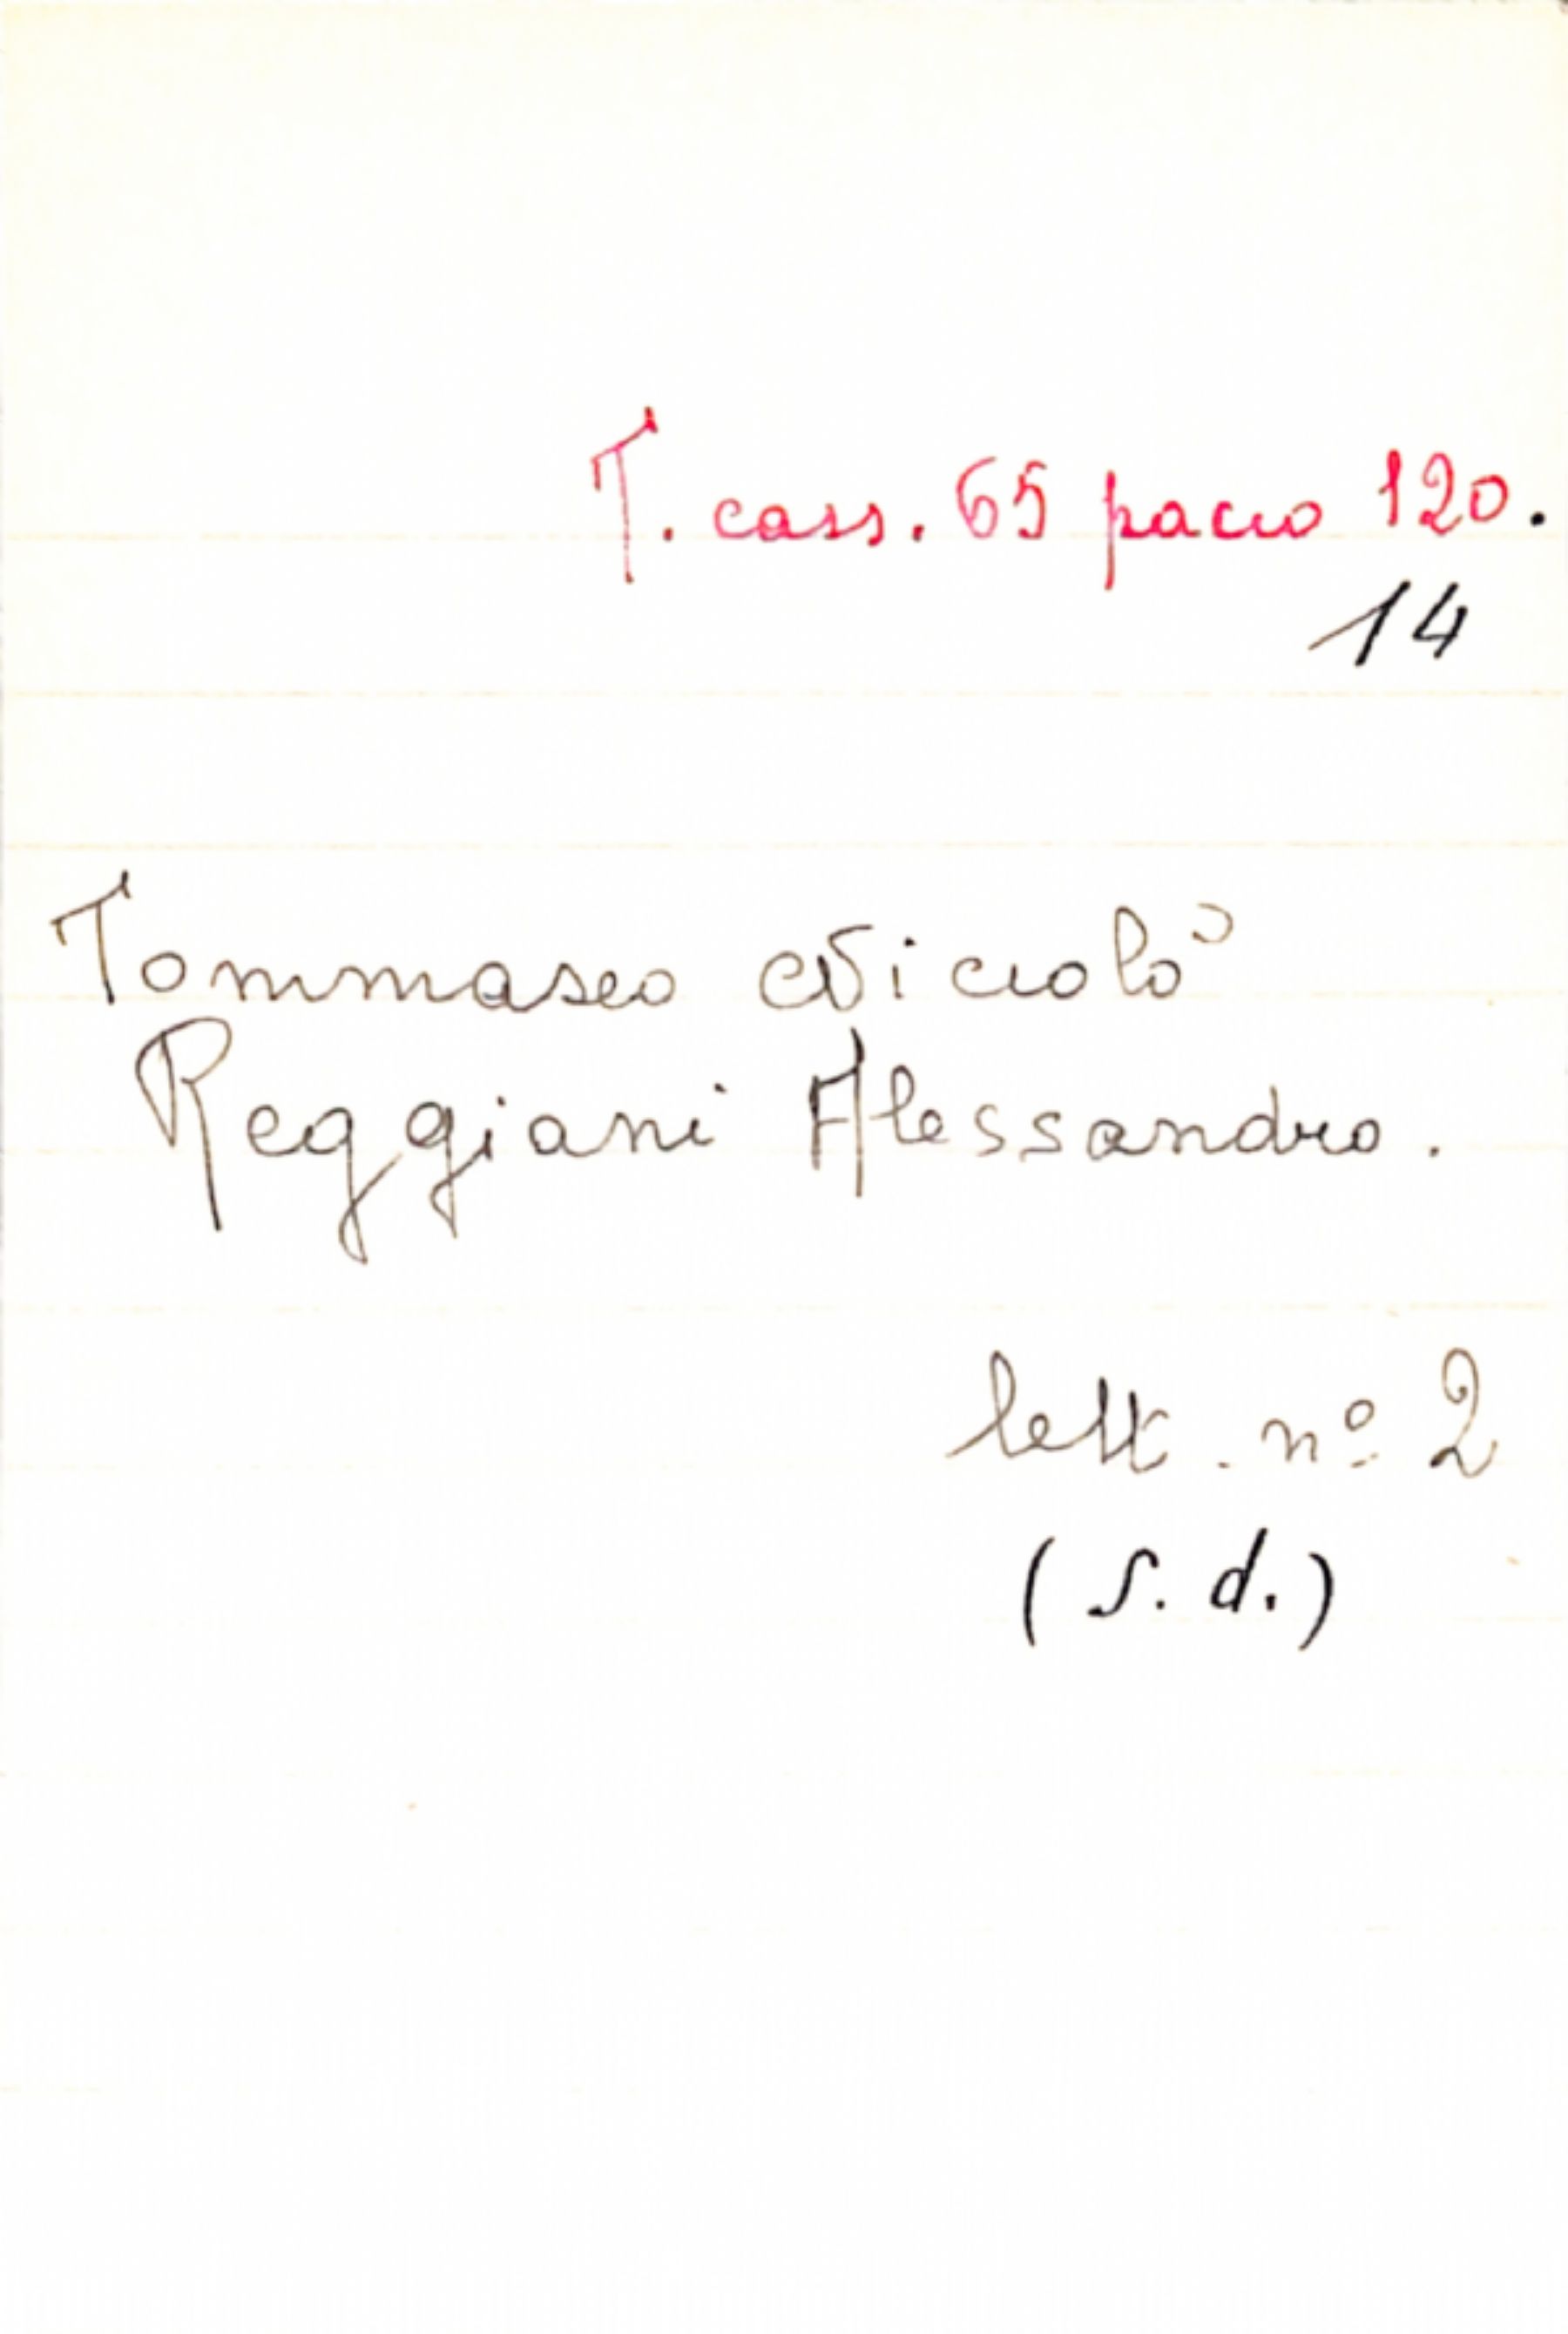 T. cass. 65 pacco 120.
14
Tommaseo Niccolò
Reggiani Alessandro.
lett. nº 2
(s. d.)